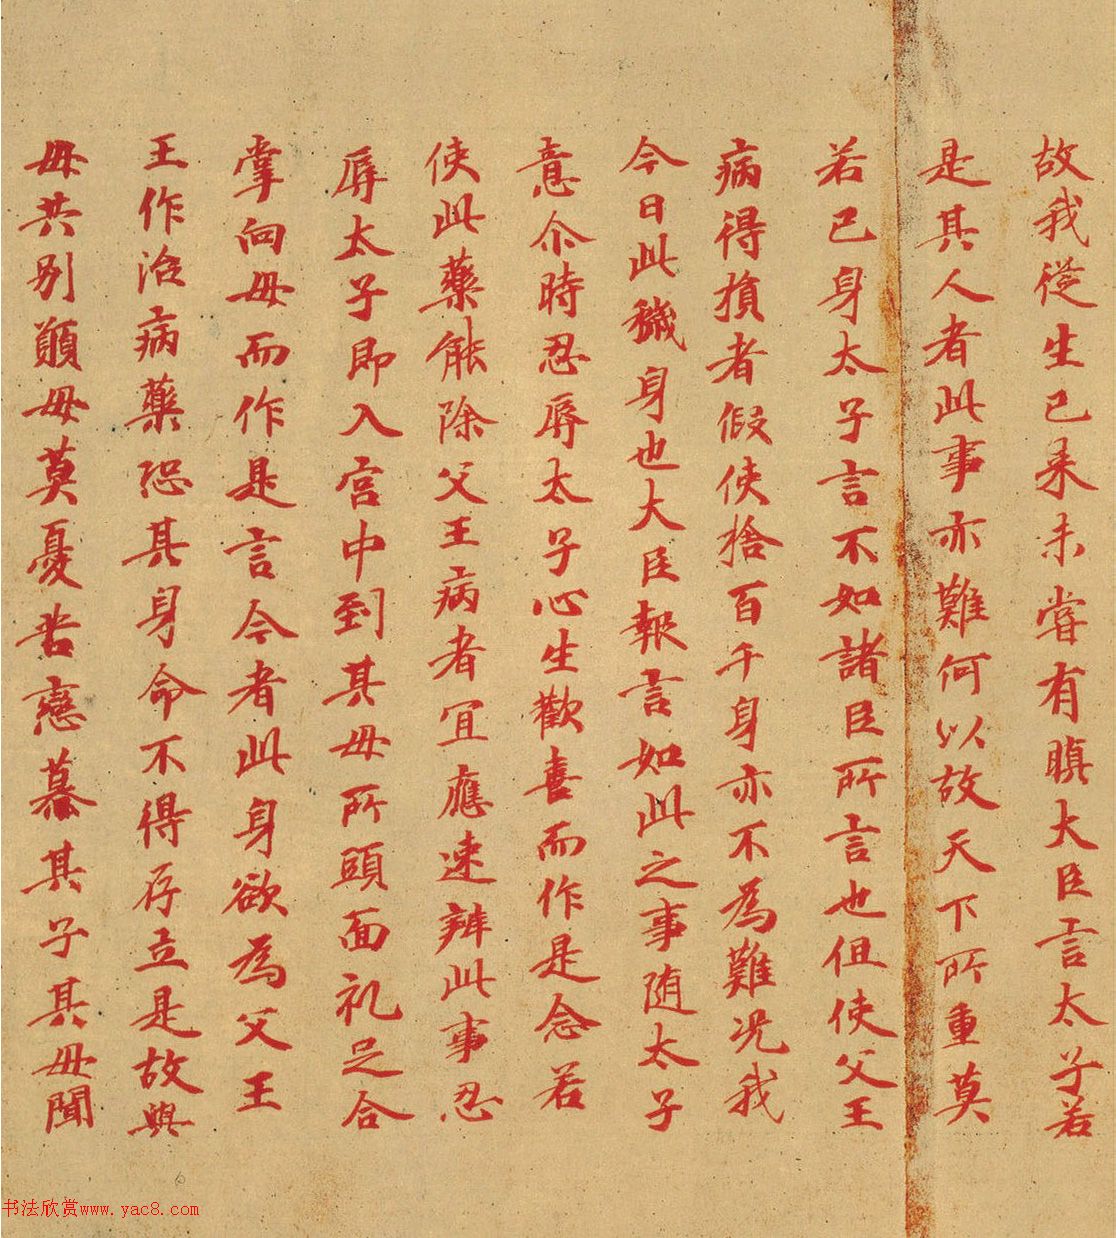 故我從生已来未甞有瞋大臣言太子若
是其人者此事亦難何以故天下所重莫
若已身太子言不如諸臣所言也但使父王
病得損者假使捨百千身亦不為難况我
今日此穢身也大臣報言如此之事随太子
意尒時忍辱太子心生歡喜而作是念若
使此藥能除父王病者宜應速辨此事忍
辱太子即入宫中到其母所頭面礼足合
掌向母而作是言今者此身欲為父王
王作治病藥恐其身命不得存立是故與
母共別願母莫憂苦戀慕其子其母聞
书法欣赏www.yac8.com